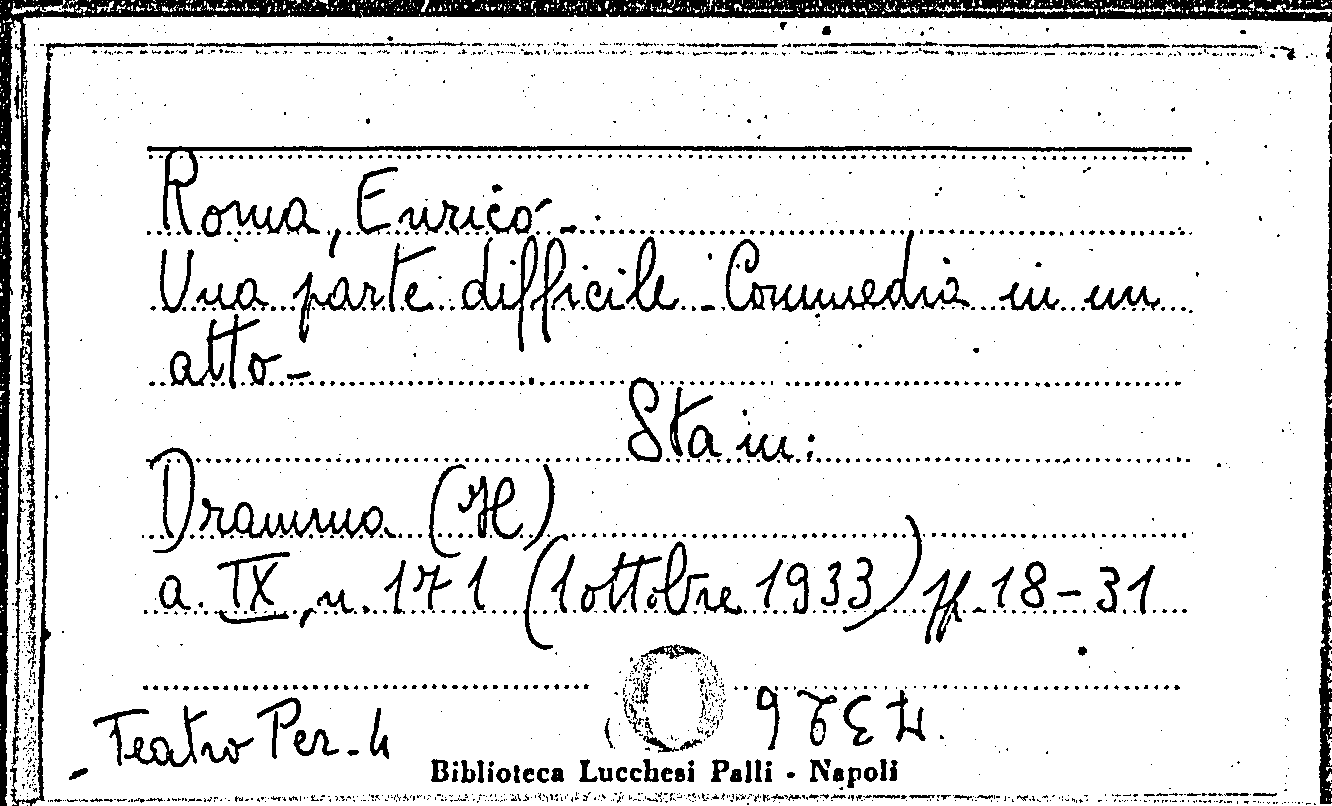 Roma, Enrico -
Una parte difficile - Commedia in un
atto -
Sta in:
Dramma (Il)
a. IX, n. 171 (1 ottobre 1933) pp. 18-31
Teatro Per. 4
Biblioteca Lucchesi Palli - Napoli